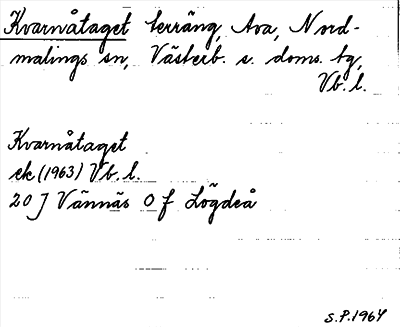 Kvarnåtaget terräng, Ava, Nord-
malings sn, Västerb. s. doms. tg,
Vb. l.
Kvarnåtaget
ek (1963) Vb. l.
20 J Vännäs 0 f Lögdeå
S.P. 1964